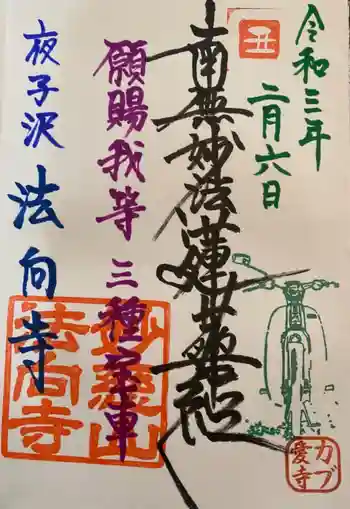 令和三年
二月六日
丑
南無妙法蓮華経
願賜我等 三種宝車
夜子沢 法向寺
法向寺
カブ
愛寺